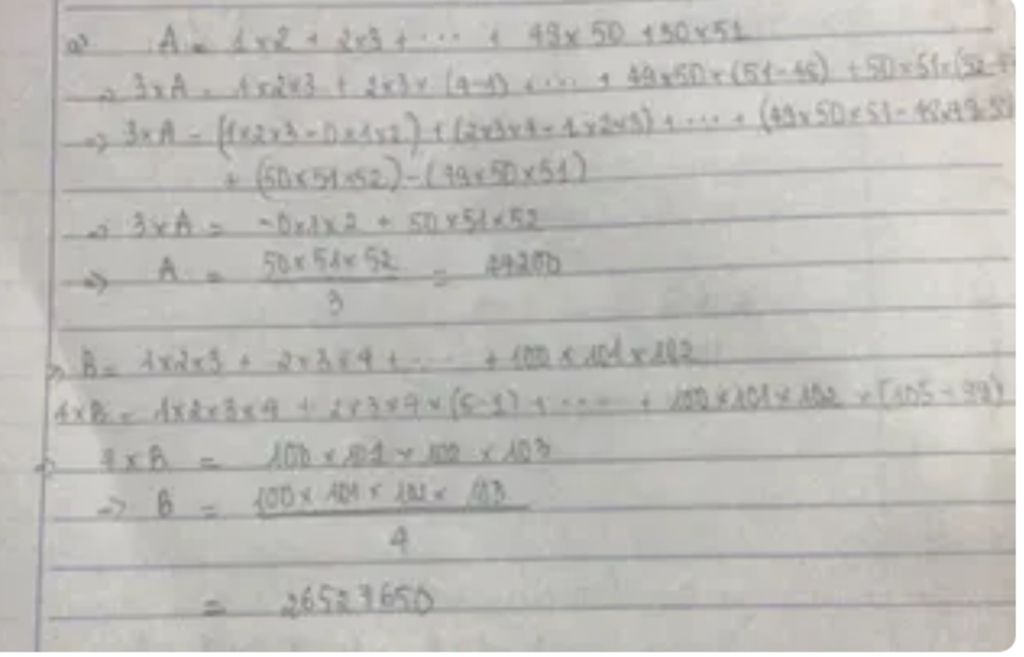 a) A = 1×2 + 2×3 + ... + 49×50 + 50×51
=> 3×A = 1×2×3 + 2×3×(4-1) + ... + 49×50×(51-48) + 50×51×(52-
=> 3×A = (1×2×3 - 0×1×2) + (2×3×4 - 1×2×3) + ... + (49×50×51 - 48×49×50)
+ (50×51×52) - (49×50×51)
=> 3×A = -0×1×2 + 50×51×52
=> A = 50×51×52 / 3 = 44200
B = 1×2×3 + 2×3×4 + ... + 100×101×102
4×B = 1×2×3×4 + 2×3×4×(5-1) + ... + 100×101×102×(103-99)
=> 4×B = 100×101×102×103
=> B = 100×101×102×103 / 4
= 26527650